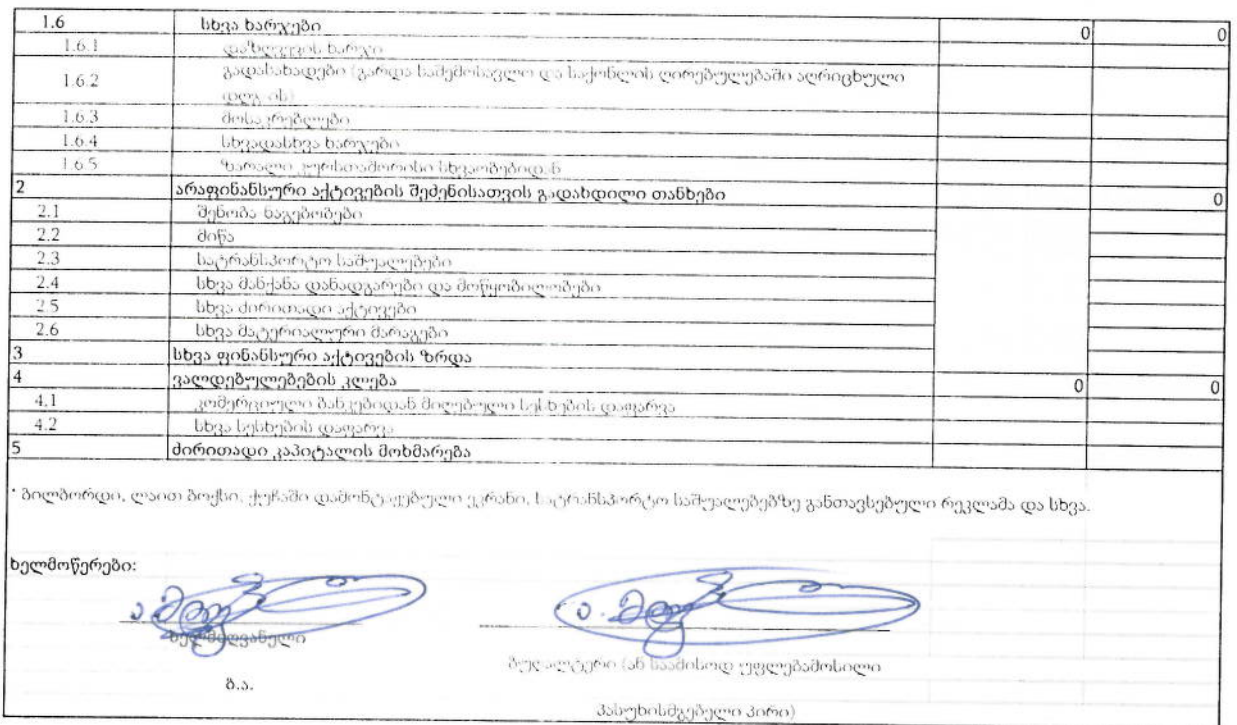 1.6 სხვა ხარჯები 0 0
1.6.1 დაზღვევის ხარჯი
1.6.2 გადასახადები (გარდა საშემოსავლო და საქონლის ღირებულებაში აღრიცხული
დღგ-ის)
1.6.3 მოსაკრებლები
1.6.4 სხვადასხვა ხარჯები
1.6.5 ზარალი კურსთაშორისი სხვაობებიდან
2 არაფინანსური აქტივების შეძენისათვის გადახდილი თანხები 0
2.1 შენობა ნაგებობები
2.2 მიწა
2.3 სატრანსპორტო საშუალებები
2.4 სხვა მანქანა დანადგარები და მოწყობილობები
2.5 სხვა ძირითადი აქტივები
2.6 სხვა მატერიალური მარაგები
3 სხვა ფინანსური აქტივების ზრდა
4 ვალდებულებების კლება 0 0
4.1 კომერციული ბანკებიდან მიღებული სესხების დაფარვა
4.2 სხვა სესხების დაფარვა
5 ძირითადი კაპიტალის მოხმარება
* ბილბორდი, ლაით ბოქსი, ქუჩაში დამონტაჟებული ეკრანი, სატრანსპორტო საშუალებებზე განთავსებული რეკლამა და სხვა.
ხელმოწერები:
ხელმძღვანელი
ბუღალტერი (ან საამისოდ უფლებამოსილი
ბ.ა.
პასუხისმგებელი პირი)